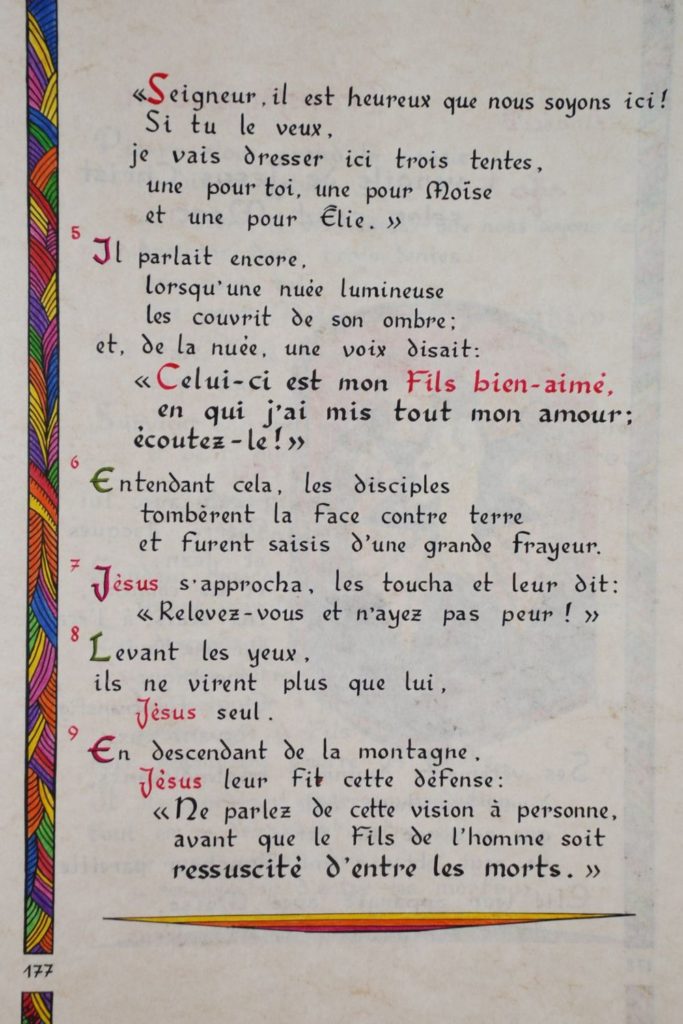 «Seigneur, il est heureux que nous soyons ici!
Si tu le veux,
je vais dresser ici trois tentes,
une pour toi, une pour Moïse
et une pour Élie. »
5 Il parlait encore,
lorsqu'une nuée lumineuse
les couvrit de son ombre;
et, de la nuée, une voix disait:
« Celui-ci est mon Fils bien-aimé,
en qui j'ai mis tout mon amour;
écoutez-le!»
6 Entendant cela, les disciples
tombèrent la face contre terre
et furent saisis d'une grande frayeur.
7 Jésus s'approcha, les toucha et leur dit:
« Relevez-vous et n'ayez pas peur! »
8 Levant les yeux,
ils ne virent plus que lui,
Jésus seul.
9 En descendant de la montagne,
Jésus leur fit cette défense:
«Ne parlez de cette vision à personne,
avant que le Fils de l'homme soit
ressuscité d'entre les morts. »
177